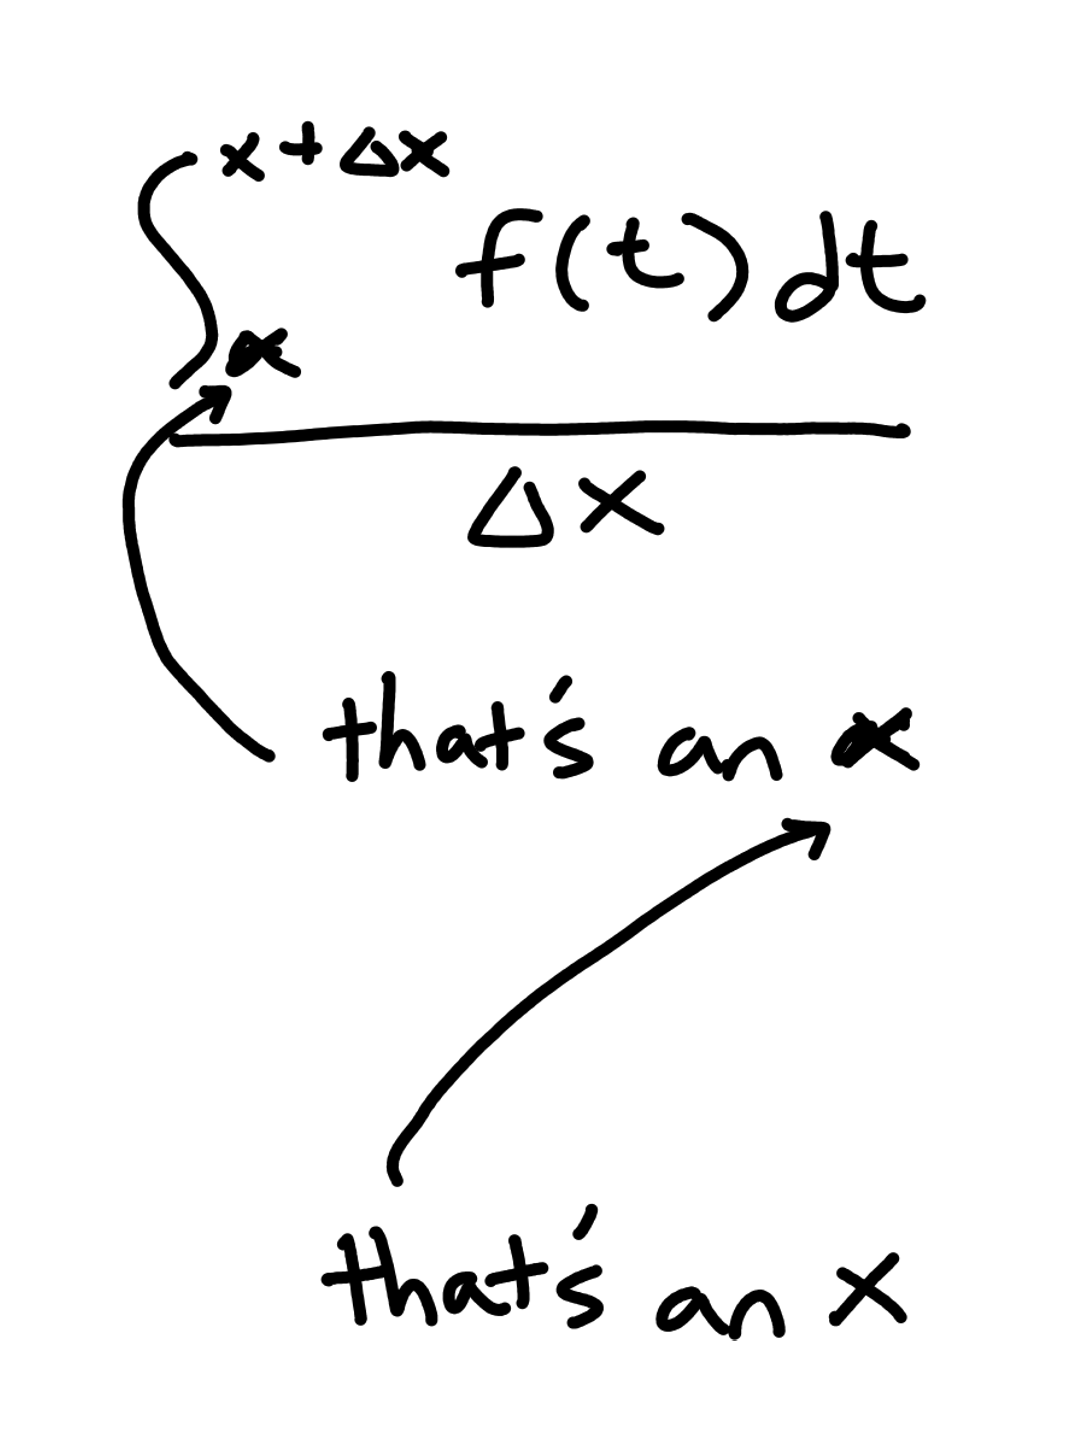 x + Δx
f(t) dt
x
Δx
that's an x
that's an x